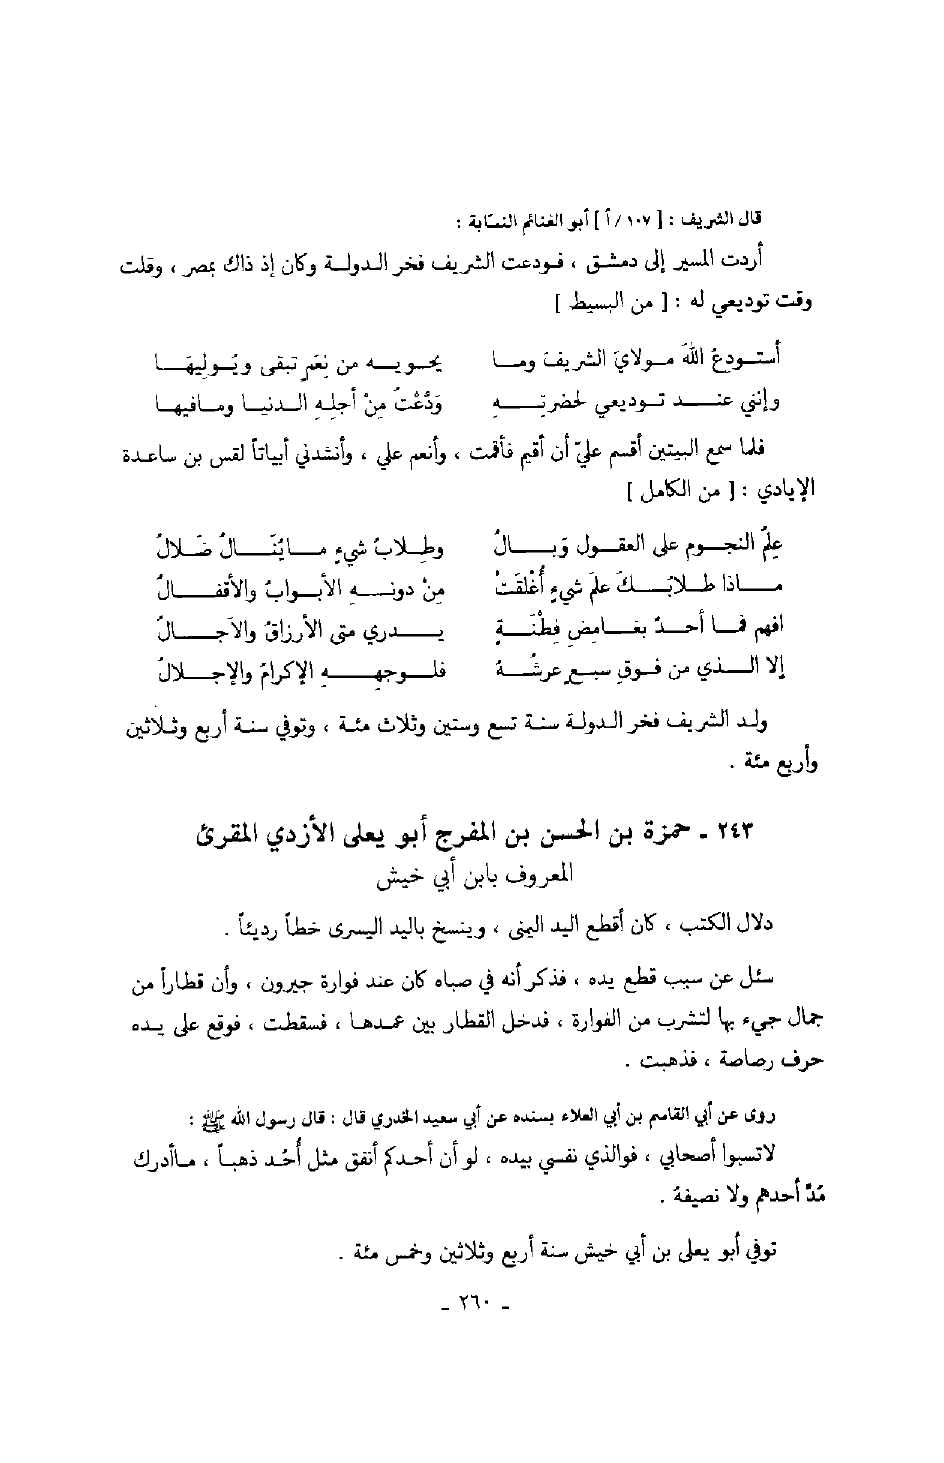 قال الشريف : [ ١٠٧ / أ ] أبو الغنائم النسّابة :
أردت المسير إلى دمشق ، فودعت الشريف فخر الدولة وكان إذ ذاك بمصر ، وقلت
وقت توديعي له : [ من البسيط ]
أستودعُ اللهَ مولايَ الشريفَ وما يحويه من نِعَمٍ تبقى ويُوليهَا
وإنني عند توديعي لحضرتِهِ وَدَّعْتُ مِنْ أجلِهِ الدنيا ومافيها
فلما سمع البيتين أقسم عليّ أن أقيم فأقمت ، وأنعم علي ، وأنشدني أبياتاً لقس بن ساعدة
الإيادي : [ من الكامل ]
عِلمُ النجوم على العقول وَبَالُ وطِلابُ شيءٍ مايُنَالُ ضَلالُ
ماذا طلابُكَ علمَ شيءٍ أُغلقَتْ مِنْ دونِهِ الأبوابُ والأقفالُ
افهم فما أحدٌ بغامضِ فِطْنَةٍ يدري متى الأرزاقُ والآجالُ
إلا الذي من فوقِ سبعٍ عرشُهُ فلوجهِهِ الإكرامُ والإجلالُ
ولد الشريف فخر الدولة سنة تسع وستين وثلاث مئة ، وتوفي سنة أربع وثلاثين
وأربع مئة .
٢٤٣ - حمزة بن الحسن بن المفرج أبو يعلى الأزدي المقرئ
المعروف بابن أبي خيش
دلال الكتب ، كان أقطع اليد اليمنى ، وينسخ باليد اليسرى خطاً رديئاً .
سئل عن سبب قطع يده ، فذكر أنه في صباه كان عند فوارة جيرون ، وأن قطاراً من
جمال جيء بها لتشرب من الفوارة ، فدخل القطار بين عمدها ، فسقطت ، فوقع على يده
حرف رصاصة ، فذهبت .
روى عن أبي القاسم بن أبي العلاء بسنده عن أبي سعيد الخدري قال : قال رسول الله ﷺ :
لاتسبوا أصحابي ، فوالذي نفسي بيده ، لو أن أحدكم أنفق مثل أُحُد ذهباً ، ماأدرك
مُدّ أحدهم ولا نصيفهُ .
توفي أبو يعلى بن أبي خيش سنة أربع وثلاثين وخمس مئة .
- ٢٦٠ -